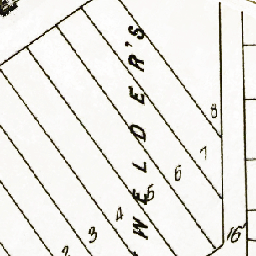 WELDER'S
8
7
6
5
4
3
2
16'